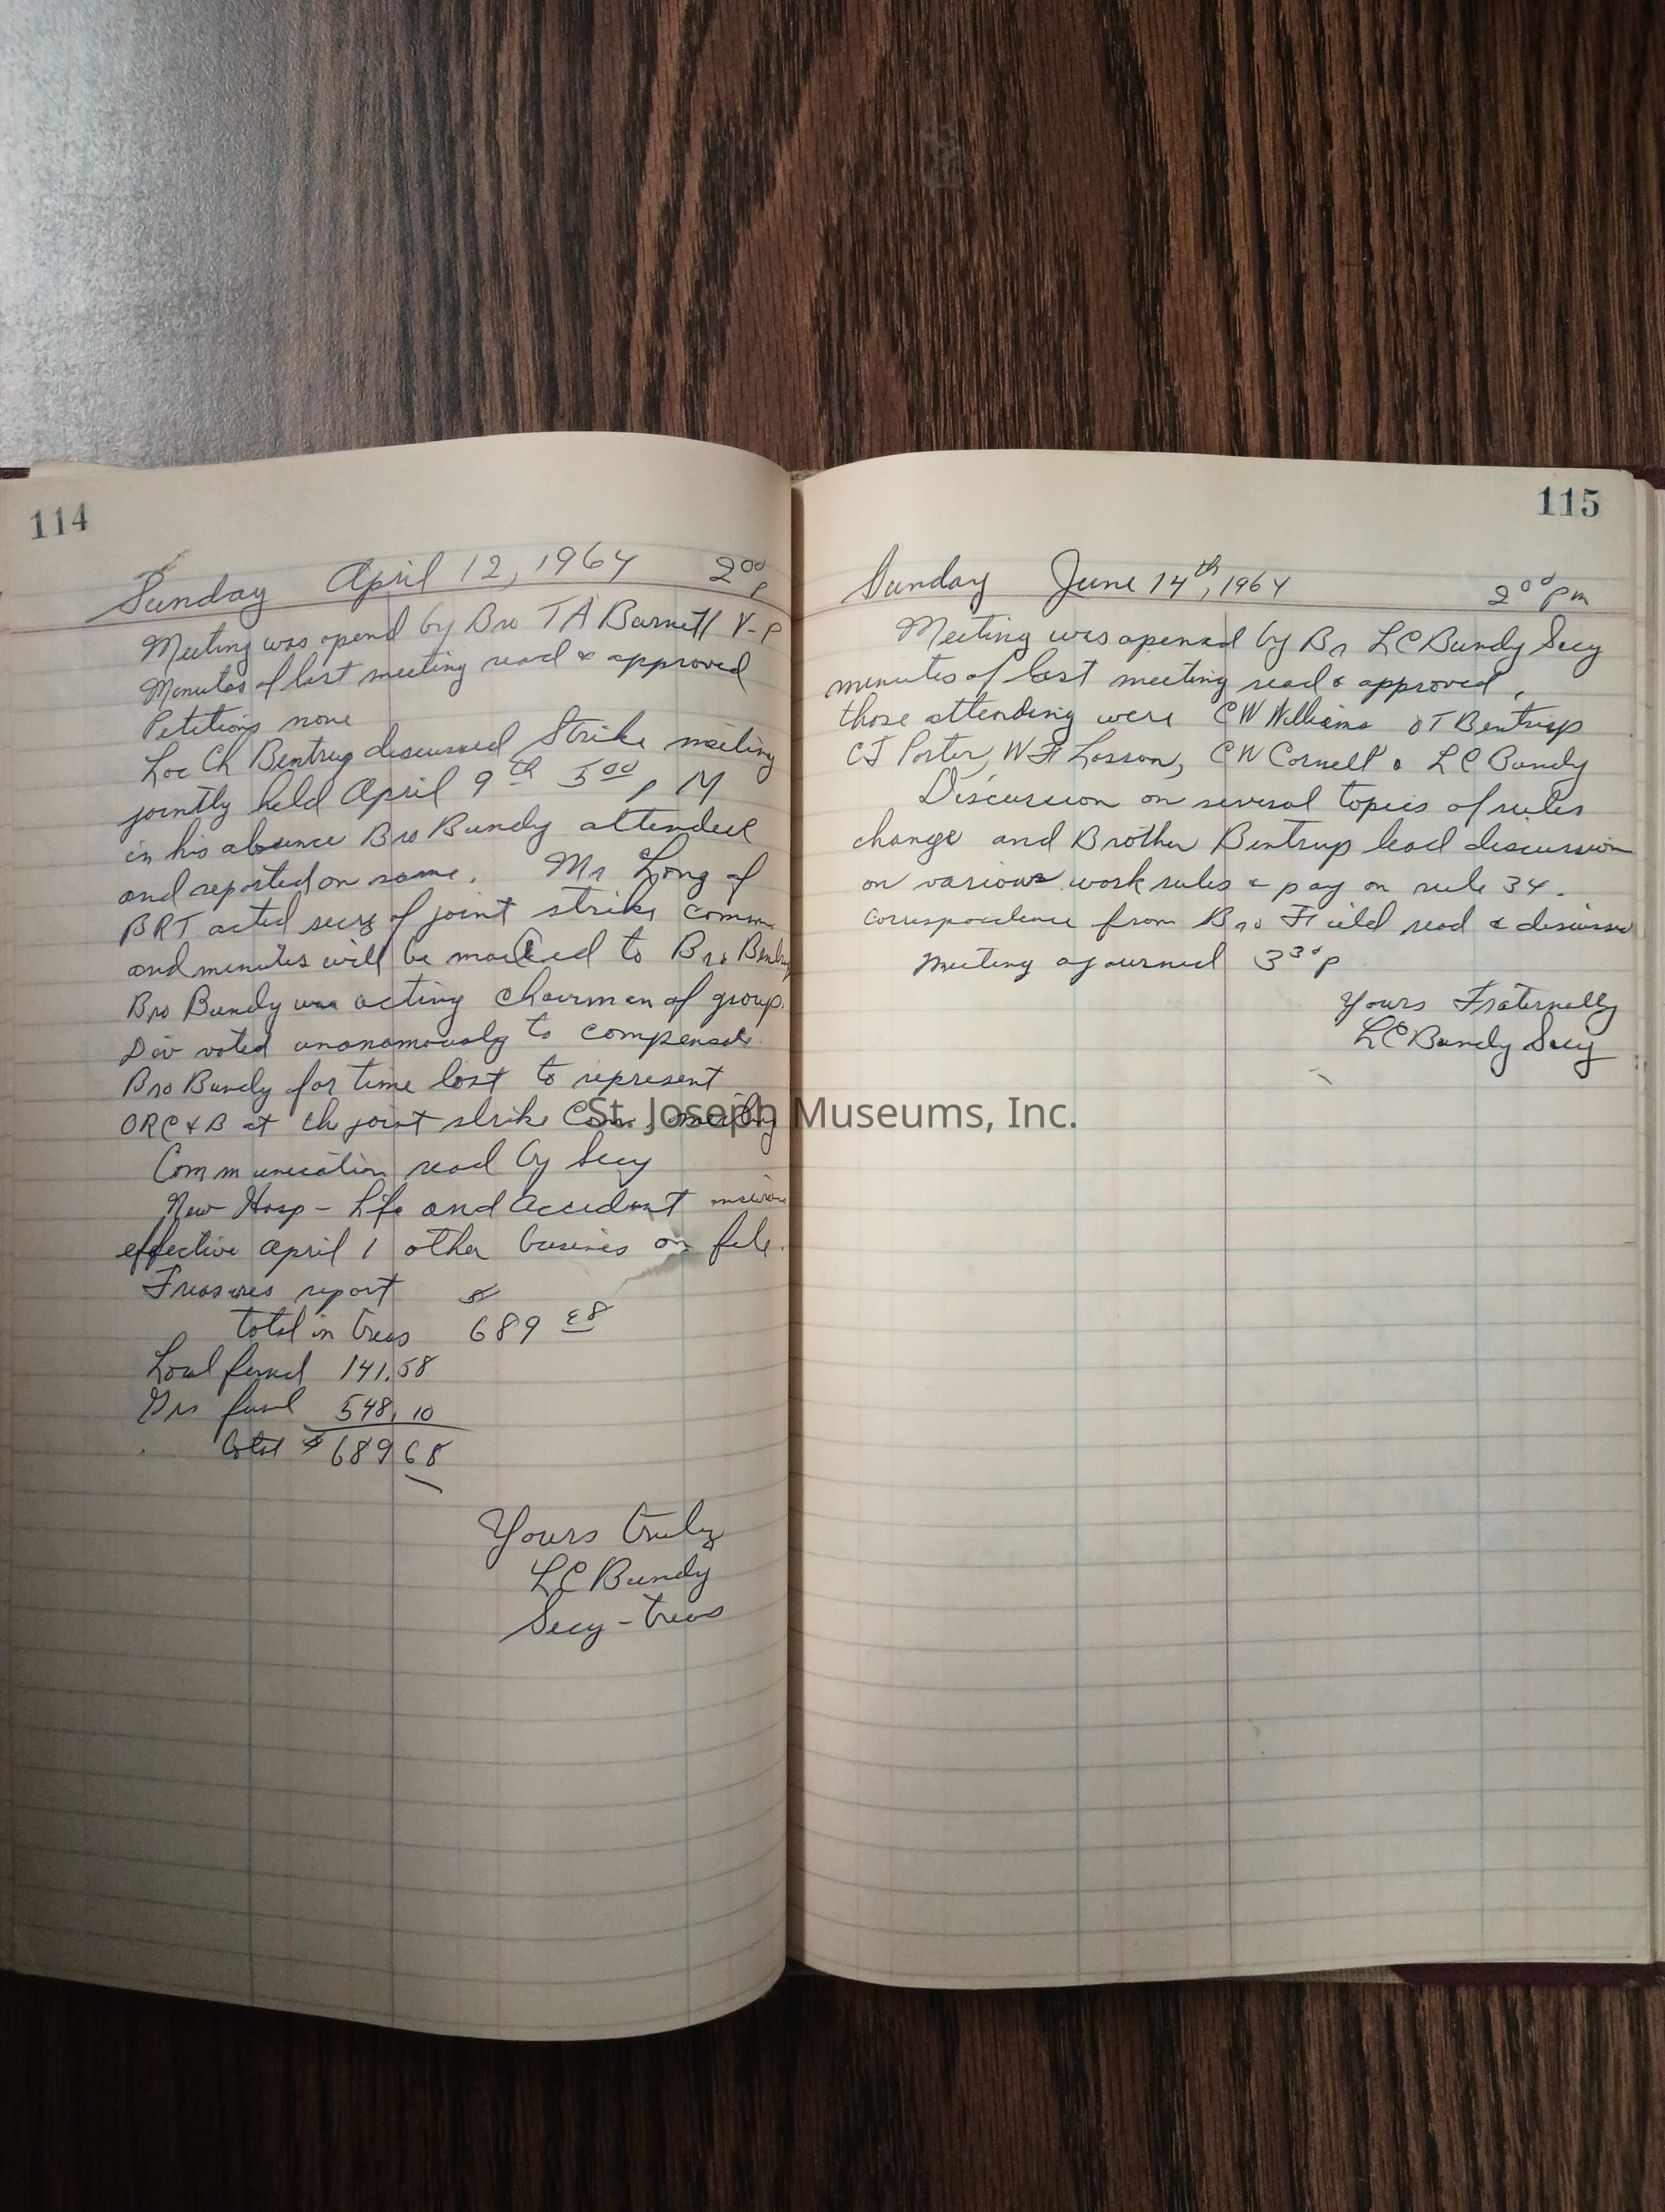 114
Sunday April 12, 1964 2⁰⁰ P
Meeting was opend by Bro TA Barnett V-P
Minutes of last meeting read & approved
Petitions none
Loc Ch Bentrup discussed Strike meeting
jointly held April 9th 5⁰⁰ P M
in his absence Bro Bundy attended
and reported on same. Mr Long of
BRT acted secy of joint strike comm
and minutes will be mailed to Bro Bentrup
Bro Bundy was acting chairman of group.
Div voted unanamously to compensate
Bro Bundy for time lost to represent
ORC&B at th joint strike Com. meeting
Communication read by Secy
New Hosp - Life and accident
effective april 1 other busines on file.
Treasures report
total in treas 689 68
Local fund 141.58
Grs fund 548.10
total $689 68
Yours truly
LC Bundy
Secy-treas
115
Sunday June 14th, 1964 2⁰⁰ Pm
Meeting was opened by Br LC Bundy Secy
minutes of last meeting read & approved,
those attending were CW Williams OT Bentrup
CJ Porter, WF Losson, CW Cornell & LC Bundy
Discussion on several topics of rules
change and Brother Bentrup lead discussion
on various work rules & pay on rule 34.
correspondence from Bro Field read & discussed
Meeting ajourned 3³⁰ p
Yours Fraternelly
LC Bundy Secy
St. Joseph Museums, Inc.